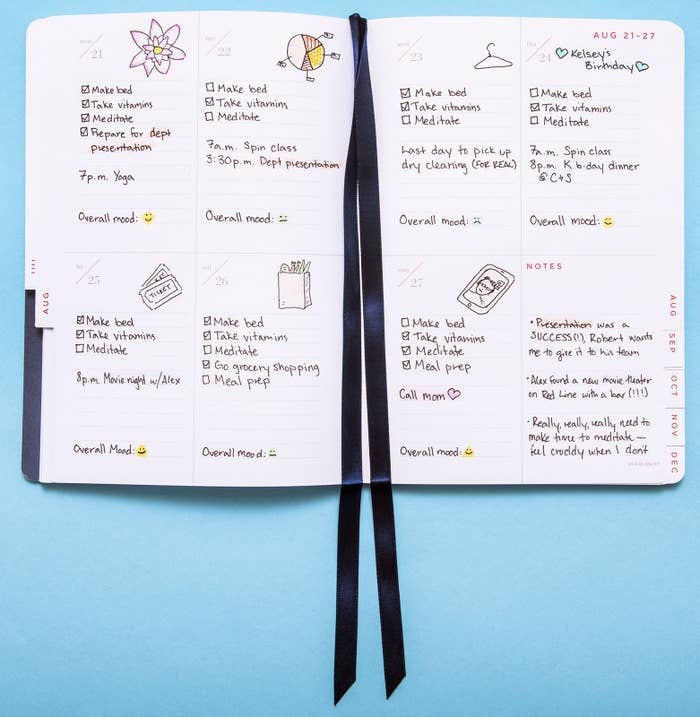 mon
21
☑ Make bed
☑ Take vitamins
☑ Meditate
☑ Prepare for dept
presentation
7p.m. Yoga
Overall mood:
22
☐ Make bed
☑ Take vitamins
☐ Meditate
7a.m. Spin class
3:30p.m. Dept presentation
Overall mood:
wed
23
☑ Make bed
☑ Take vitamins
☐ Meditate
Last day to pick up
dry cleaning (FOR REAL)
Overall mood:
AUG 21-27
thu
24
Kelsey's
Birthday
☐ Make bed
☑ Take vitamins
☐ Meditate
7a.m. Spin class
8p.m. K b-day dinner
@ C+S
Overall mood:
AUG
fri
25
TICKET
☑ Make bed
☑ Take vitamins
☐ Meditate
8p.m. Movie night w/Alex
Overall Mood:
sat
26
☑ Make bed
☑ Take vitamins
☐ Meditate
☑ Go grocery shopping
☐ Meal prep
Overall mood:
sun
27
☐ Make bed
☑ Take vitamins
☑ Meditate
☑ Meal prep
Call mom
Overall mood:
NOTES
• Presentation was a
SUCCESS(!), Robert wants
me to give it to his team
• Alex found a new movie theater
on Red Line with a bar (!!!)
• Really, really, really need to
make time to meditate—
feel cruddy when I don't
AUG
SEP
OCT
NOV
DEC